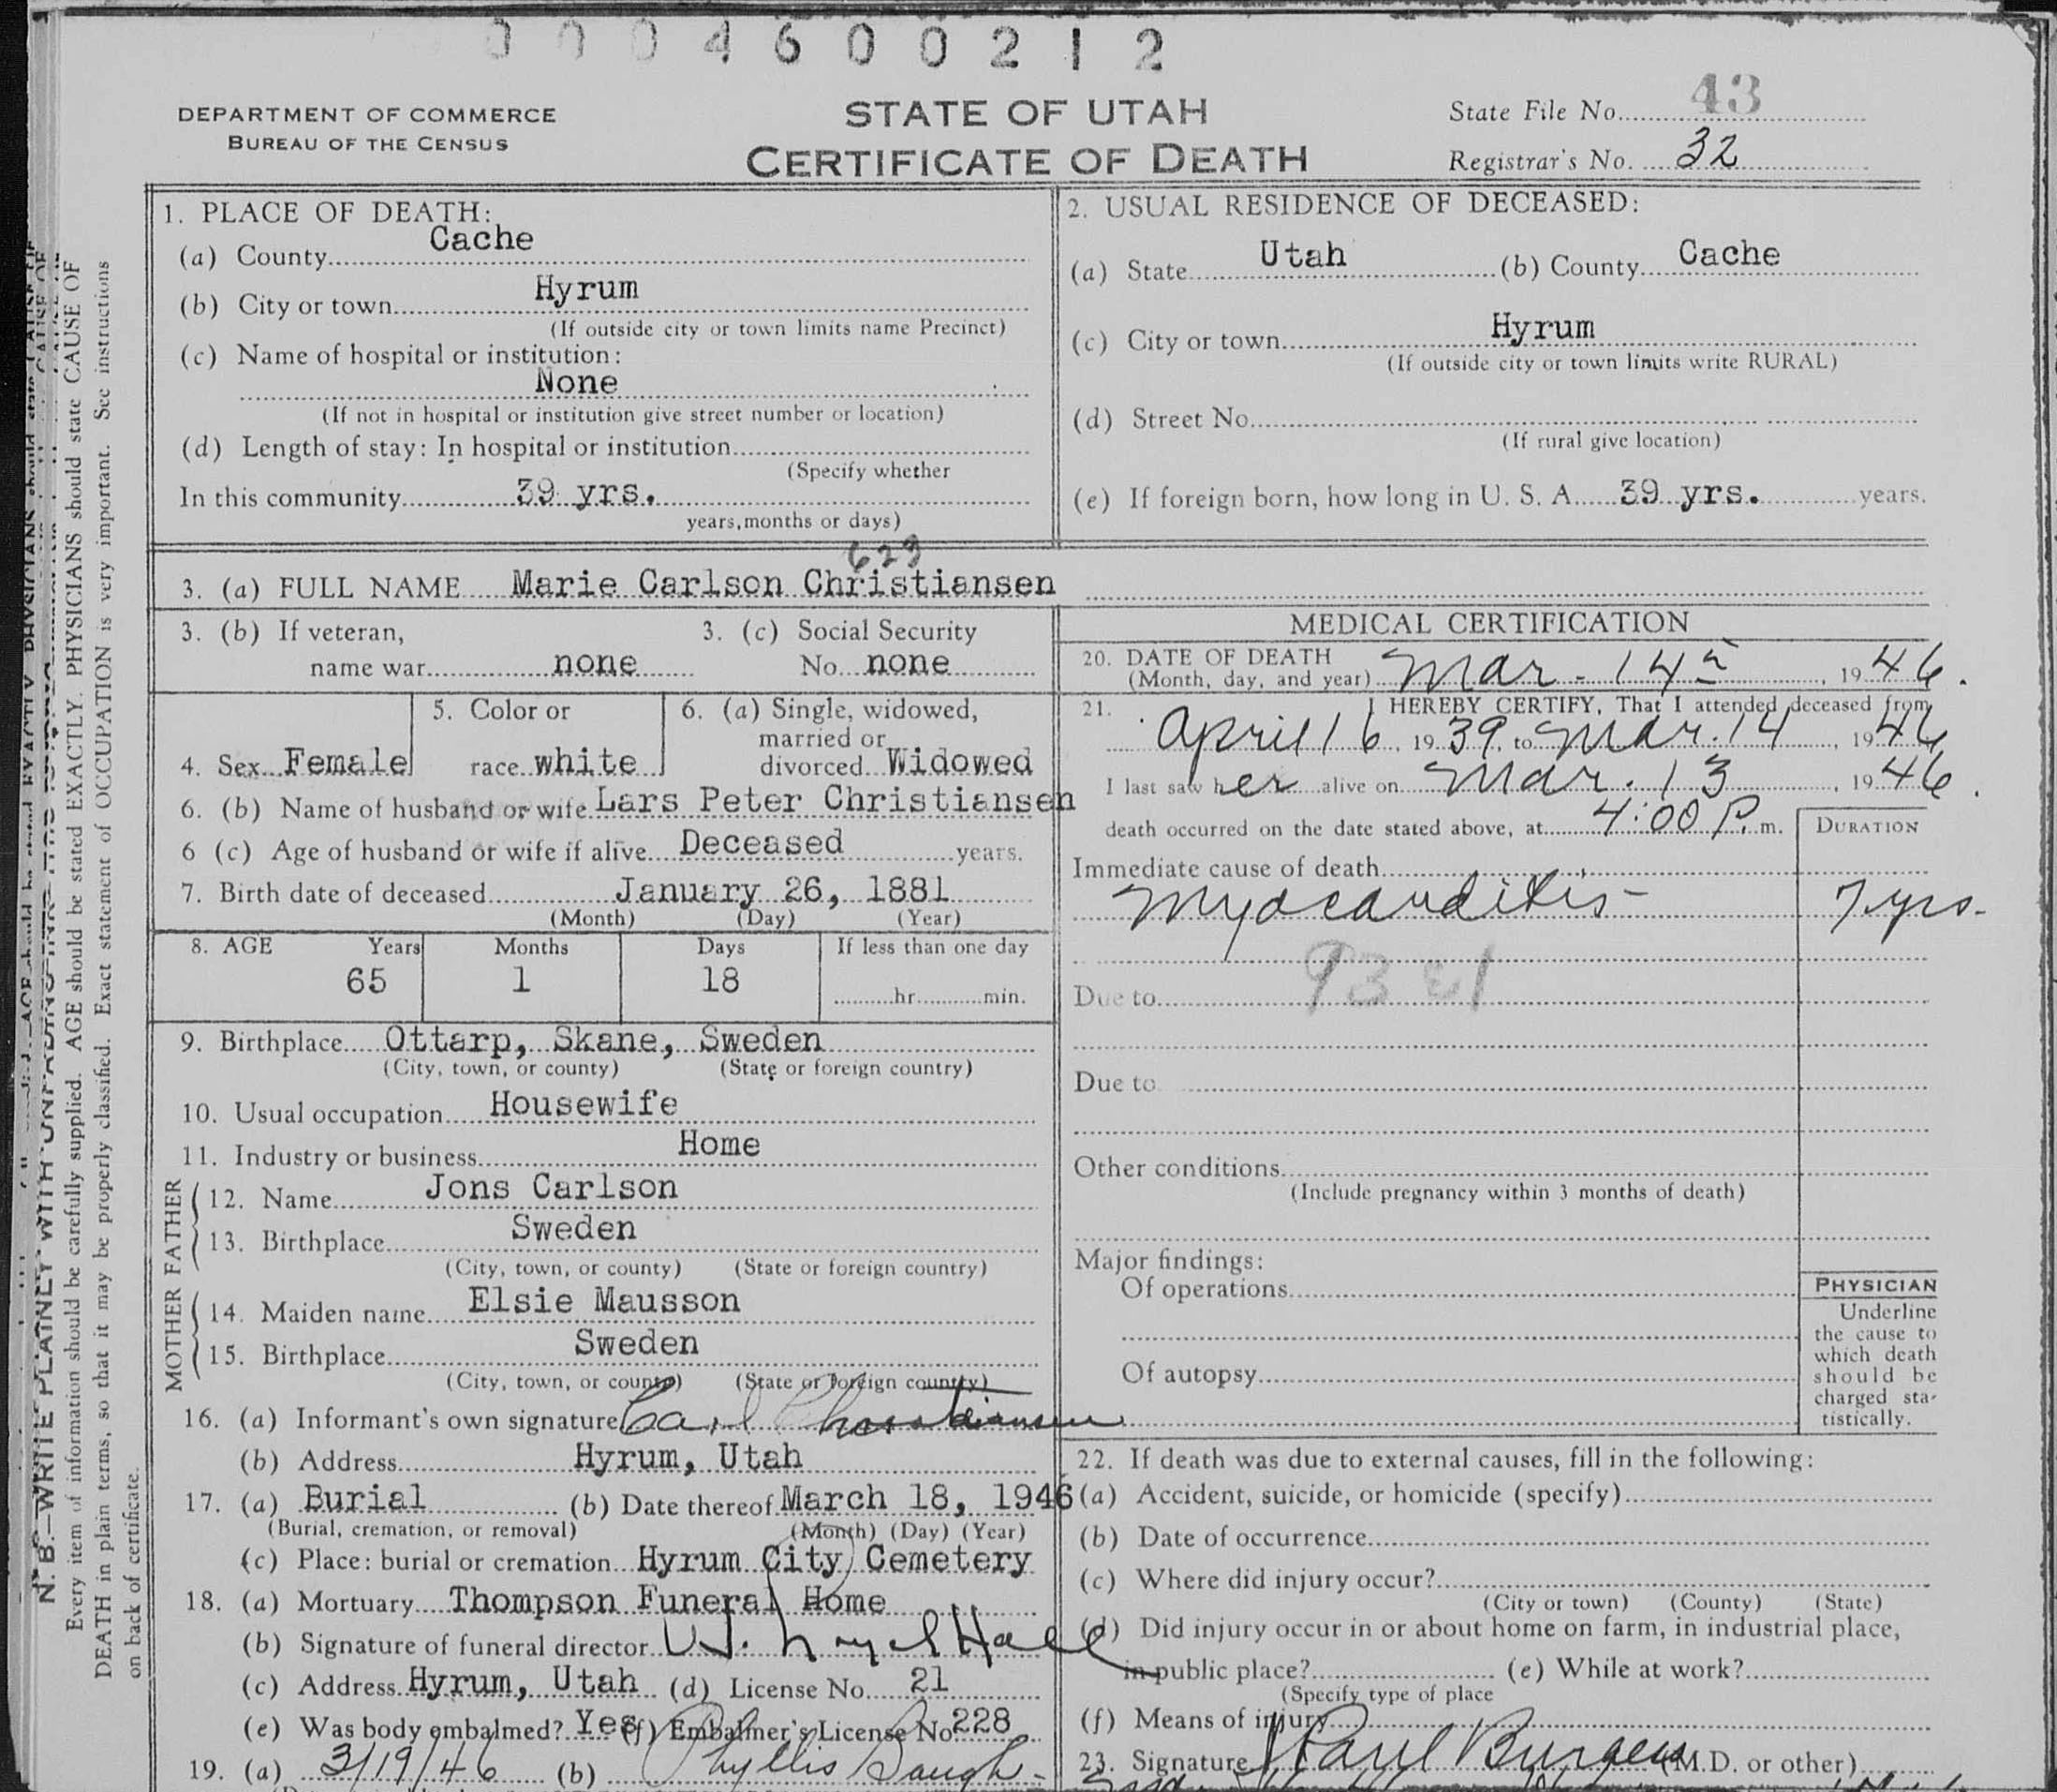 0004600212
DEPARTMENT OF COMMERCE
BUREAU OF THE CENSUS
STATE OF UTAH
CERTIFICATE OF DEATH
State File No. 43
Registrar's No. 32
1. PLACE OF DEATH:
(a) County Cache
(b) City or town Hyrum
(If outside city or town limits name Precinct)
(c) Name of hospital or institution:
None
(If not in hospital or institution give street number or location)
(d) Length of stay: In hospital or institution
(Specify whether
In this community 39 yrs.
years, months or days)
2. USUAL RESIDENCE OF DECEASED:
(a) State Utah (b) County Cache
(c) City or town Hyrum
(If outside city or town limits write RURAL)
(d) Street No.
(If rural give location)
(e) If foreign born, how long in U. S. A. 39 yrs. years.
629
3. (a) FULL NAME Marie Carlson Christiansen
3. (b) If veteran, name war none
3. (c) Social Security No. none
4. Sex Female
5. Color or race white
6. (a) Single, widowed, married or divorced Widowed
6. (b) Name of husband or wife Lars Peter Christiansen
6 (c) Age of husband or wife if alive Deceased years.
7. Birth date of deceased January 26, 1881
(Month) (Day) (Year)
8. AGE Years Months Days If less than one day
65 1 18 hr. min.
9. Birthplace Ottarp, Skane, Sweden
(City, town, or county) (State or foreign country)
10. Usual occupation Housewife
11. Industry or business Home
FATHER
12. Name Jons Carlson
13. Birthplace Sweden
(City, town, or county) (State or foreign country)
MOTHER
14. Maiden name Elsie Mausson
15. Birthplace Sweden
(City, town, or county) (State or foreign country)
16. (a) Informant's own signature Carl Christiansen
(b) Address Hyrum, Utah
17. (a) Burial (b) Date thereof March 18, 1946
(Burial, cremation, or removal) (Month) (Day) (Year)
(c) Place: burial or cremation Hyrum City Cemetery
18. (a) Mortuary Thompson Funeral Home
(b) Signature of funeral director Hall
(c) Address Hyrum, Utah (d) License No. 21
(e) Was body embalmed? Yes (f) Embalmer's License No. 228
19. (a) 3/19/46 (b) Phyllis
MEDICAL CERTIFICATION
20. DATE OF DEATH
(Month, day, and year) Mar. 14, 1946.
21. I HEREBY CERTIFY, That I attended deceased from
April 16, 1939, to Mar. 14, 1946
I last saw her alive on Mar. 13, 1946.
death occurred on the date stated above, at 4:00 P. m.
DURATION
Immediate cause of death
Myocarditis - 7 yrs.
Due to
Due to
Other conditions
(Include pregnancy within 3 months of death)
Major findings:
Of operations
Of autopsy
PHYSICIAN
Underline
the cause to
which death
should be
charged sta-
tistically.
22. If death was due to external causes, fill in the following:
(a) Accident, suicide, or homicide (specify)
(b) Date of occurrence
(c) Where did injury occur?
(City or town) (County) (State)
(d) Did injury occur in or about home on farm, in industrial place,
in public place? (e) While at work?
(Specify type of place
(f) Means of injury
23. Signature Paul Burgess (M.D. or other)
N. B.—WRITE PLAINLY WITH UNFADING INK
Every item of information should be carefully supplied. AGE should be stated EXACTLY. PHYSICIANS should state CAUSE OF
DEATH in plain terms, so that it may be properly classified. Exact statement of OCCUPATION is very important. See instructions
on back of certificate.